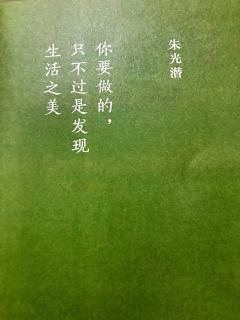 朱光潜
你要做的，
只不过是发现
生活之美